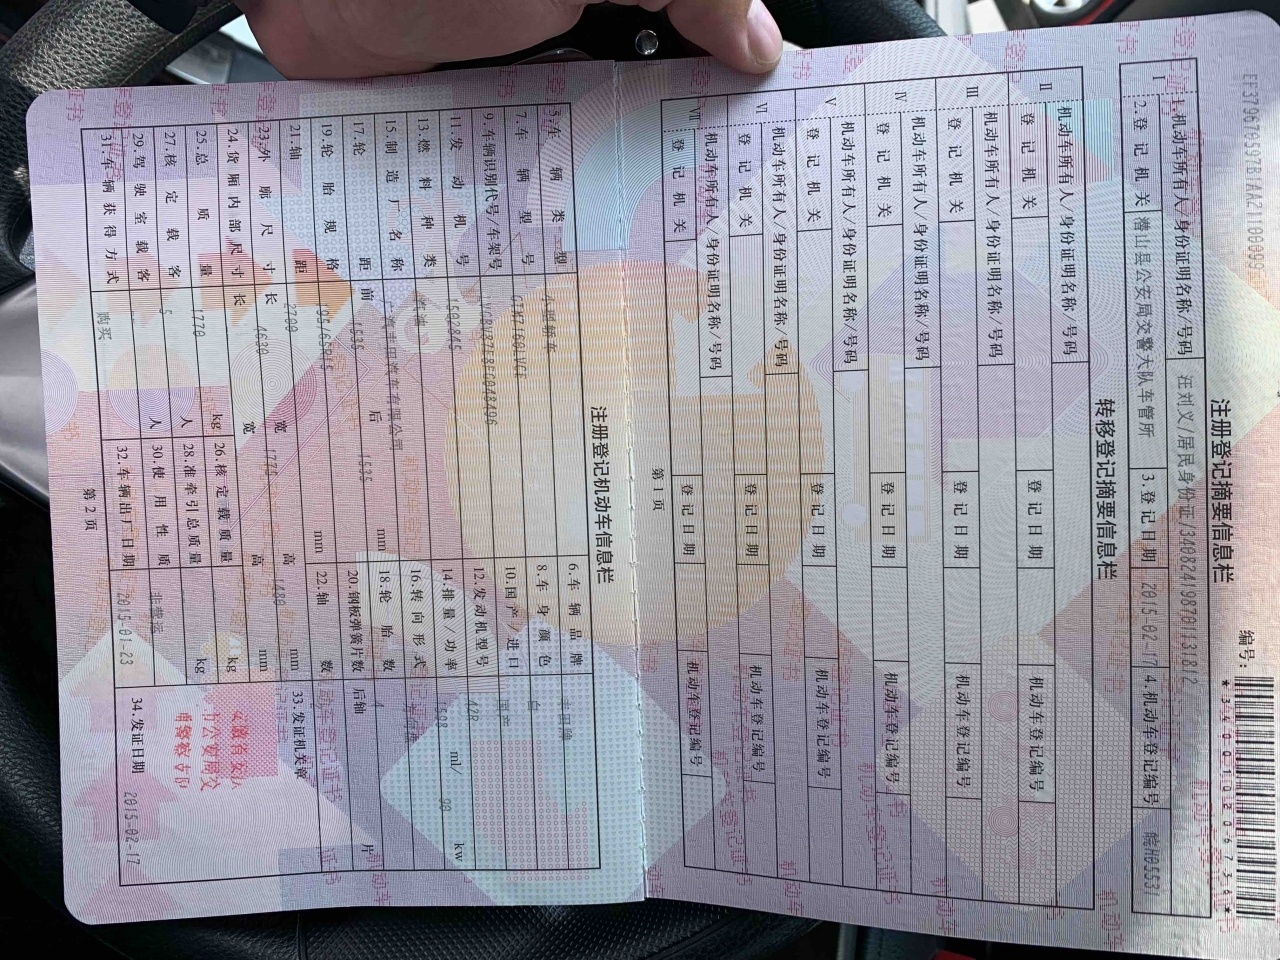 编号:
*340010206736*
注册登记摘要信息栏
Ⅰ 1.机动车所有人/身份证明名称/号码 汪刘义/居民身份证/340824198701131812
2.登记机关 潜山县公安局交警大队车管所 3.登记日期 2015-02-17 4.机动车登记编号
转移登记摘要信息栏
Ⅱ 机动车所有人/身份证明名称/号码
登记机关 登记日期 机动车登记编号
Ⅲ 机动车所有人/身份证明名称/号码
登记机关 登记日期 机动车登记编号
Ⅳ 机动车所有人/身份证明名称/号码
登记机关 登记日期 机动车登记编号
Ⅴ 机动车所有人/身份证明名称/号码
登记机关 登记日期 机动车登记编号
Ⅵ 机动车所有人/身份证明名称/号码
登记机关 登记日期 机动车登记编号
Ⅶ 机动车所有人/身份证明名称/号码
登记机关 登记日期 机动车登记编号
第1页
注册登记机动车信息栏
5.车辆类型 小型轿车 6.车辆品牌 丰田牌
7.车辆型号 8.车身颜色 白
9.车辆识别代号/车架号 10.国产/进口 国产
11.发动机号 12.发动机型号
13.燃料种类 汽油 14.排量/功率 1598 ml/ 90 kw
15.制造厂名称 16.转向形式
17.轮距 前 1535 后 1535 mm 18.轮胎数 4
19.轮胎规格 195/65R15 20.钢板弹簧片数 后轴 片
21.轴距 2700 mm 22.轴数
23.外廓尺寸 长 4630 宽 1775 高 1480 mm 33.发证机关章
24.货厢内部尺寸 长 宽 高 mm
25.总质量 1770 kg 26.核定载质量 kg
27.核定载客 5 人 28.准牵引总质量 kg
29.驾驶室载客 人 30.使用性质 非营运
31.车辆获得方式 购买 32.车辆出厂日期 2015-01-23 34.发证日期 2015-02-17
第2页